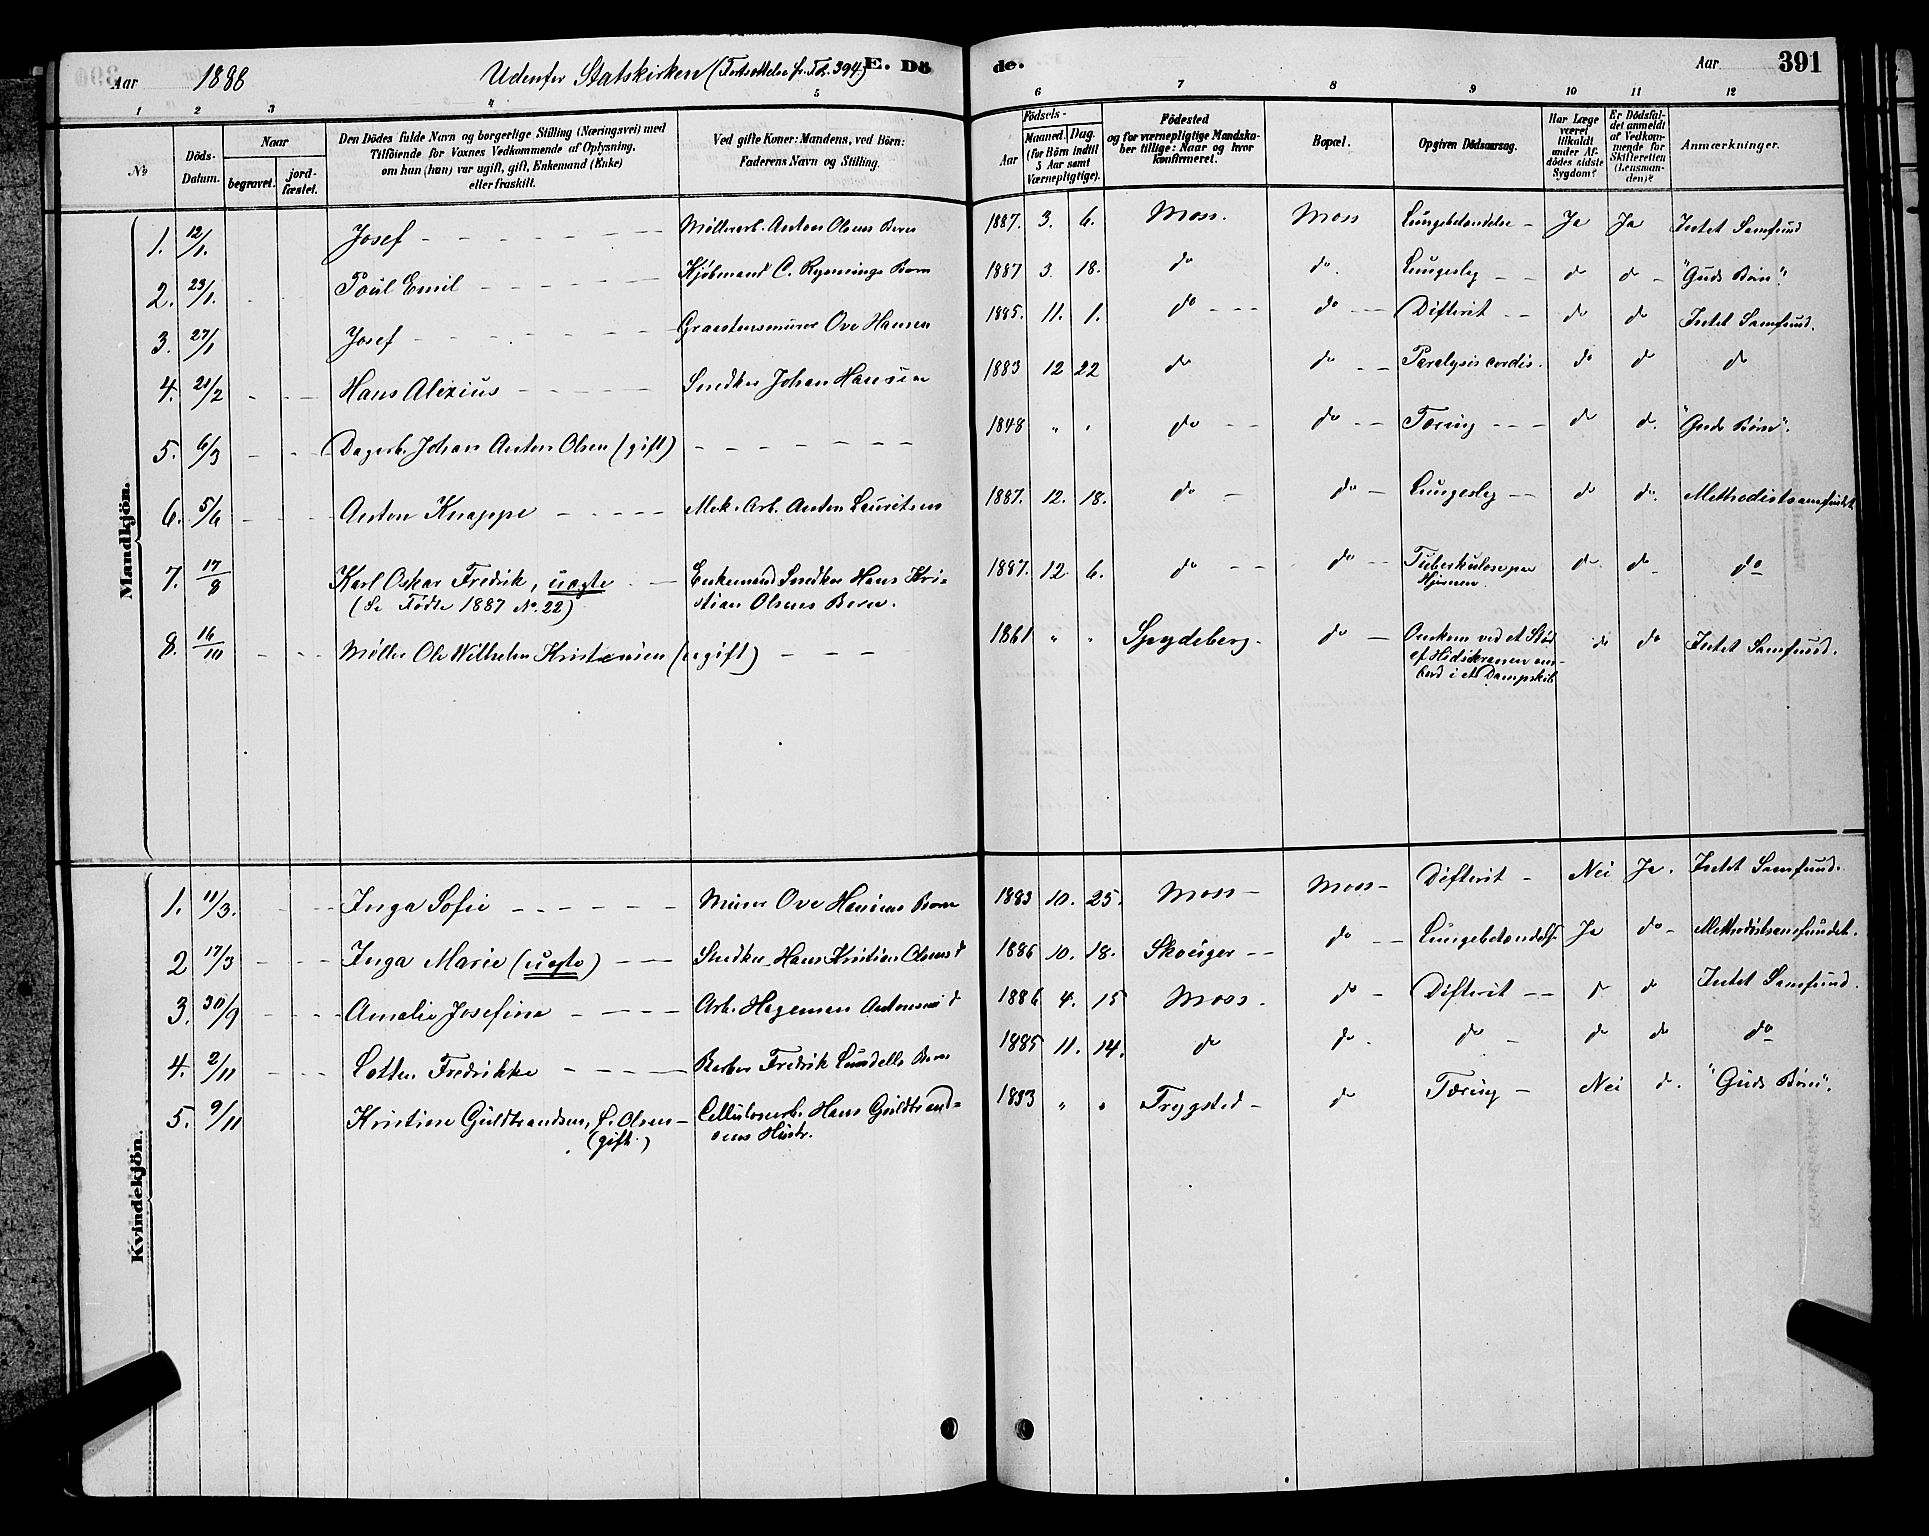 Aar 1888 Udenfor Statskirken (Fortsættelse fr. Fol. 394) E. Dö de. Aar 391
1 2 3 4 5 6 7 8 9 10 11 12
No Döds-Datum. Naar begravet. jordfæstet. Den Dödes fulde Navn og borgerlige Stilling (Næringsvei) med Tilföiende for Voxnes Vedkommende af Oplysning, om hun (han) var ugift, gift, Enkemand (Enke) eller fraskilt. Ved gifte Koner: Mandens, ved Börn: Faderens Navn og Stilling. Födsels- Aar Maaned. Dag. (for Börn indtil 5 Aar samt Værnepligtige). Födested og for værnepligtige Mandskaber tillige: Naar og hvor Konfirmeret. Bopæl. Opgiven Dödsaarsag. Har Læge været tilkaldt under Afdödes sidste Sygdom? Er Dödsfaldet anmeldt af Vedkommende for Skifteretten (Lensmanden)? Anmærkninger.
Mandkjön.
1. 12/1. Josef Møllerarb. Anton Olsens Barn 1887. 3. 6. Moss. Moss Lungebetændelse Ja Ja Intet Samfund
2. 23/1. Paul Emil Kjøbmand C. Rynnings Barn 1887 3. 18. do do. Lungeslg d d "Guds Børn".
3. 27/1 Josef Graastensmurer Ove Hansen 1885. 11. 1. do do Difterit do do Intet Samfund.
4. 21/2 Hans Alexius Snedker Johan Hansen 1883 12 22 do do Paralysis cordis. do d do
5. 6/3 Dagarb. Johan Anton Olsen (gift) 1848 " " do do Tæring d d. "Guds Børn".
6. 5/6 Anton Knappe Mek. Arb. Anton Lauritsens 1887. 12. 18. do do Lungeslg d do. Methodistsamfundet
7. 17/8 Karl Oskar Fredrik, uægte Enkemand Snedker Hans Kri- 1887. 12 6. do do Tuberkulose paa do do do
(Se Fødte 1887 No. 22) stian Olsens Barn. Hjernen
8. 16/10 Møller Ole Wilhelm Kristensen (ugift) 1861 " " Spydeberg do Omkom ved et Stød do do Intet Samfund.
af Hidsekranen om-
bord i et Dampskib
Kvindekjön.
1. 11/3. Inga Sofie Murer Ove Hansens Barn 1883 10. 25. Moss Moss Difterit Nei Ja. Intet Samfund.
2 17/3 Inga Marie (uægte) Snedker Hans Kristian Olsens d 1886 10. 18. Skoviger do Lungebetændelse Ja do Methodistsamfundet.
3. 30/9 Amalie Josefine Arb. Hageman Antonsens d 1886 4. 15 Moss. do Difterit d do Intet Samfund.
4. 2/11 Lotten Fredrikke Barber Fredrik Lundells Barn 1885 11. 14. do do. do do do do
5. 9/11 Kristine Guldbrandsen, f. Olsen Cellulosearb. Hans Guldbrand- 1853 " " Trygsted do Tæring Nei d. "Guds Børn".
(gift.) sens Hustr.